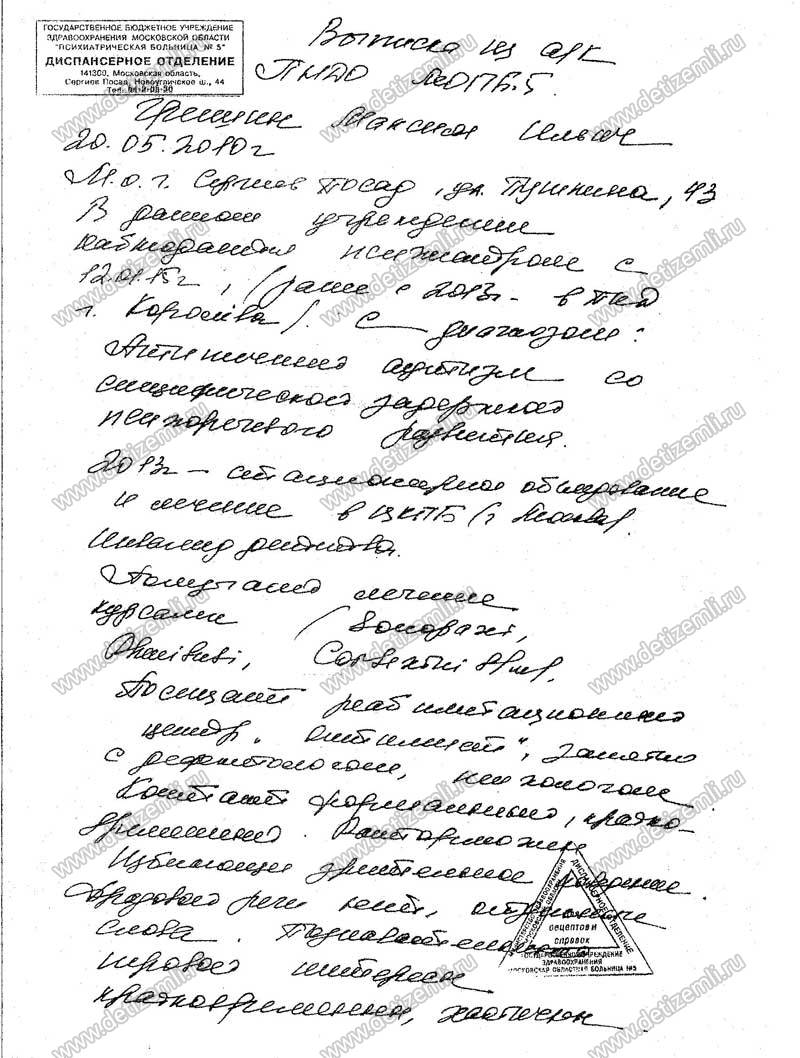 ГОСУДАРСТВЕННОЕ БЮДЖЕТНОЕ УЧРЕЖДЕНИЕ
ЗДРАВООХРАНЕНИЯ МОСКОВСКОЙ ОБЛАСТИ
"ПСИХИАТРИЧЕСКАЯ БОЛЬНИЦА № 5"
ДИСПАНСЕРНОЕ ОТДЕЛЕНИЕ
141300, Московская область,
Сергиев Посад, Новоугличское ш., 44
Выписка из а/к
ПНДО МОПБ.5.
Гришин Максим Ильич
20.05.2010г
М.о. г. Сергиев Посад, ул. Пушкина, 43
В данном учреждении
наблюдается психиатром с
12.01.15г, (ранее с 2013г – в ПНД
г. Королёва). с диагнозом:
Атипичный аутизм со
специфической задержкой
психоречевого развития.
2013г – стационарное обследование
и лечение в ЦКПБ (г. Москва).
Инвалид детства.
Получает лечение
курсами (Sonapaxi,
Phenibuti, Cortexini
Посещает реабилитационный
центр занятия
с дефектологом, психологом
Контакт формальный, кратко-
временный. Расторможен
Избегающее зрительное поведение.
Фразовой речи нет, отдельные
слова. Познавательный
игровой интересы
кратковременны, хаотичны
МИНИСТЕРСТВО ЗДРАВООХРАНЕНИЯ
МОСКОВСКОЙ ОБЛАСТИ
ДИСПАНСЕРНОЕ ОТДЕЛЕНИЕ
рецептов и
справок
ГОСУДАРСТВЕННОЕ УЧРЕЖДЕНИЕ
ЗДРАВООХРАНЕНИЯ
МОСКОВСКАЯ ОБЛАСТНАЯ БОЛЬНИЦА №5
www.detizemli.ru